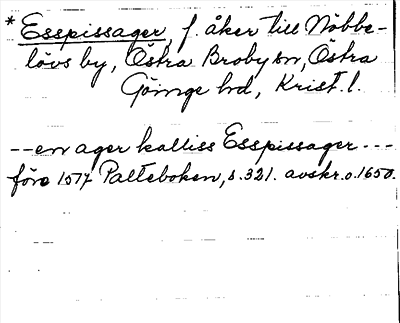 * Esspissager, f. åker till Nöbbe-
lövs by, Östra Broby sn, Östra
Göinge hd, Krist. l.
-- en ager kalliss Esspissager ---
före 1577 Palteboken, s. 321. avskr. o. 1650.